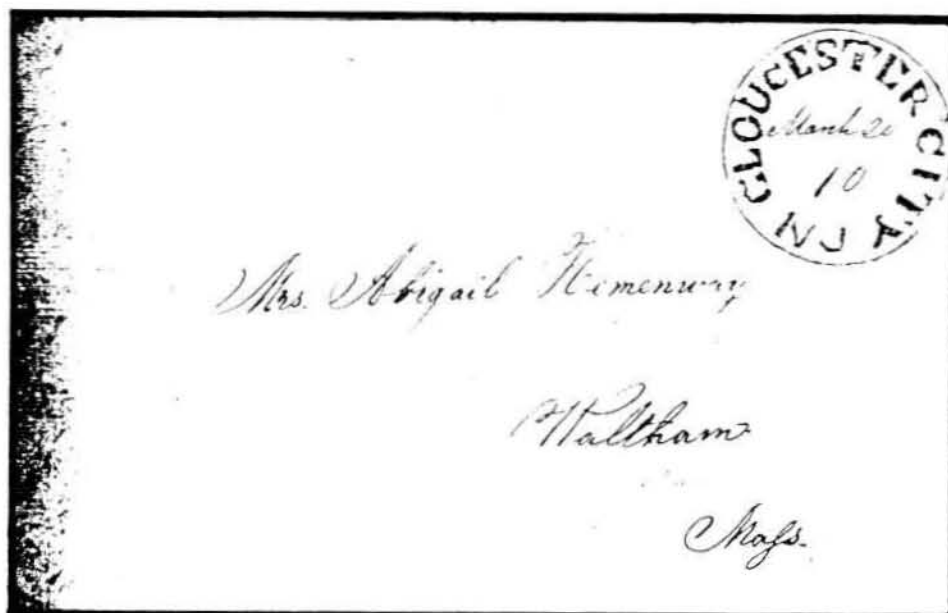 GLOUCESTER CITY
March 20
10
NJ
Mrs. Abigail Hemenway
Waltham
Mass.